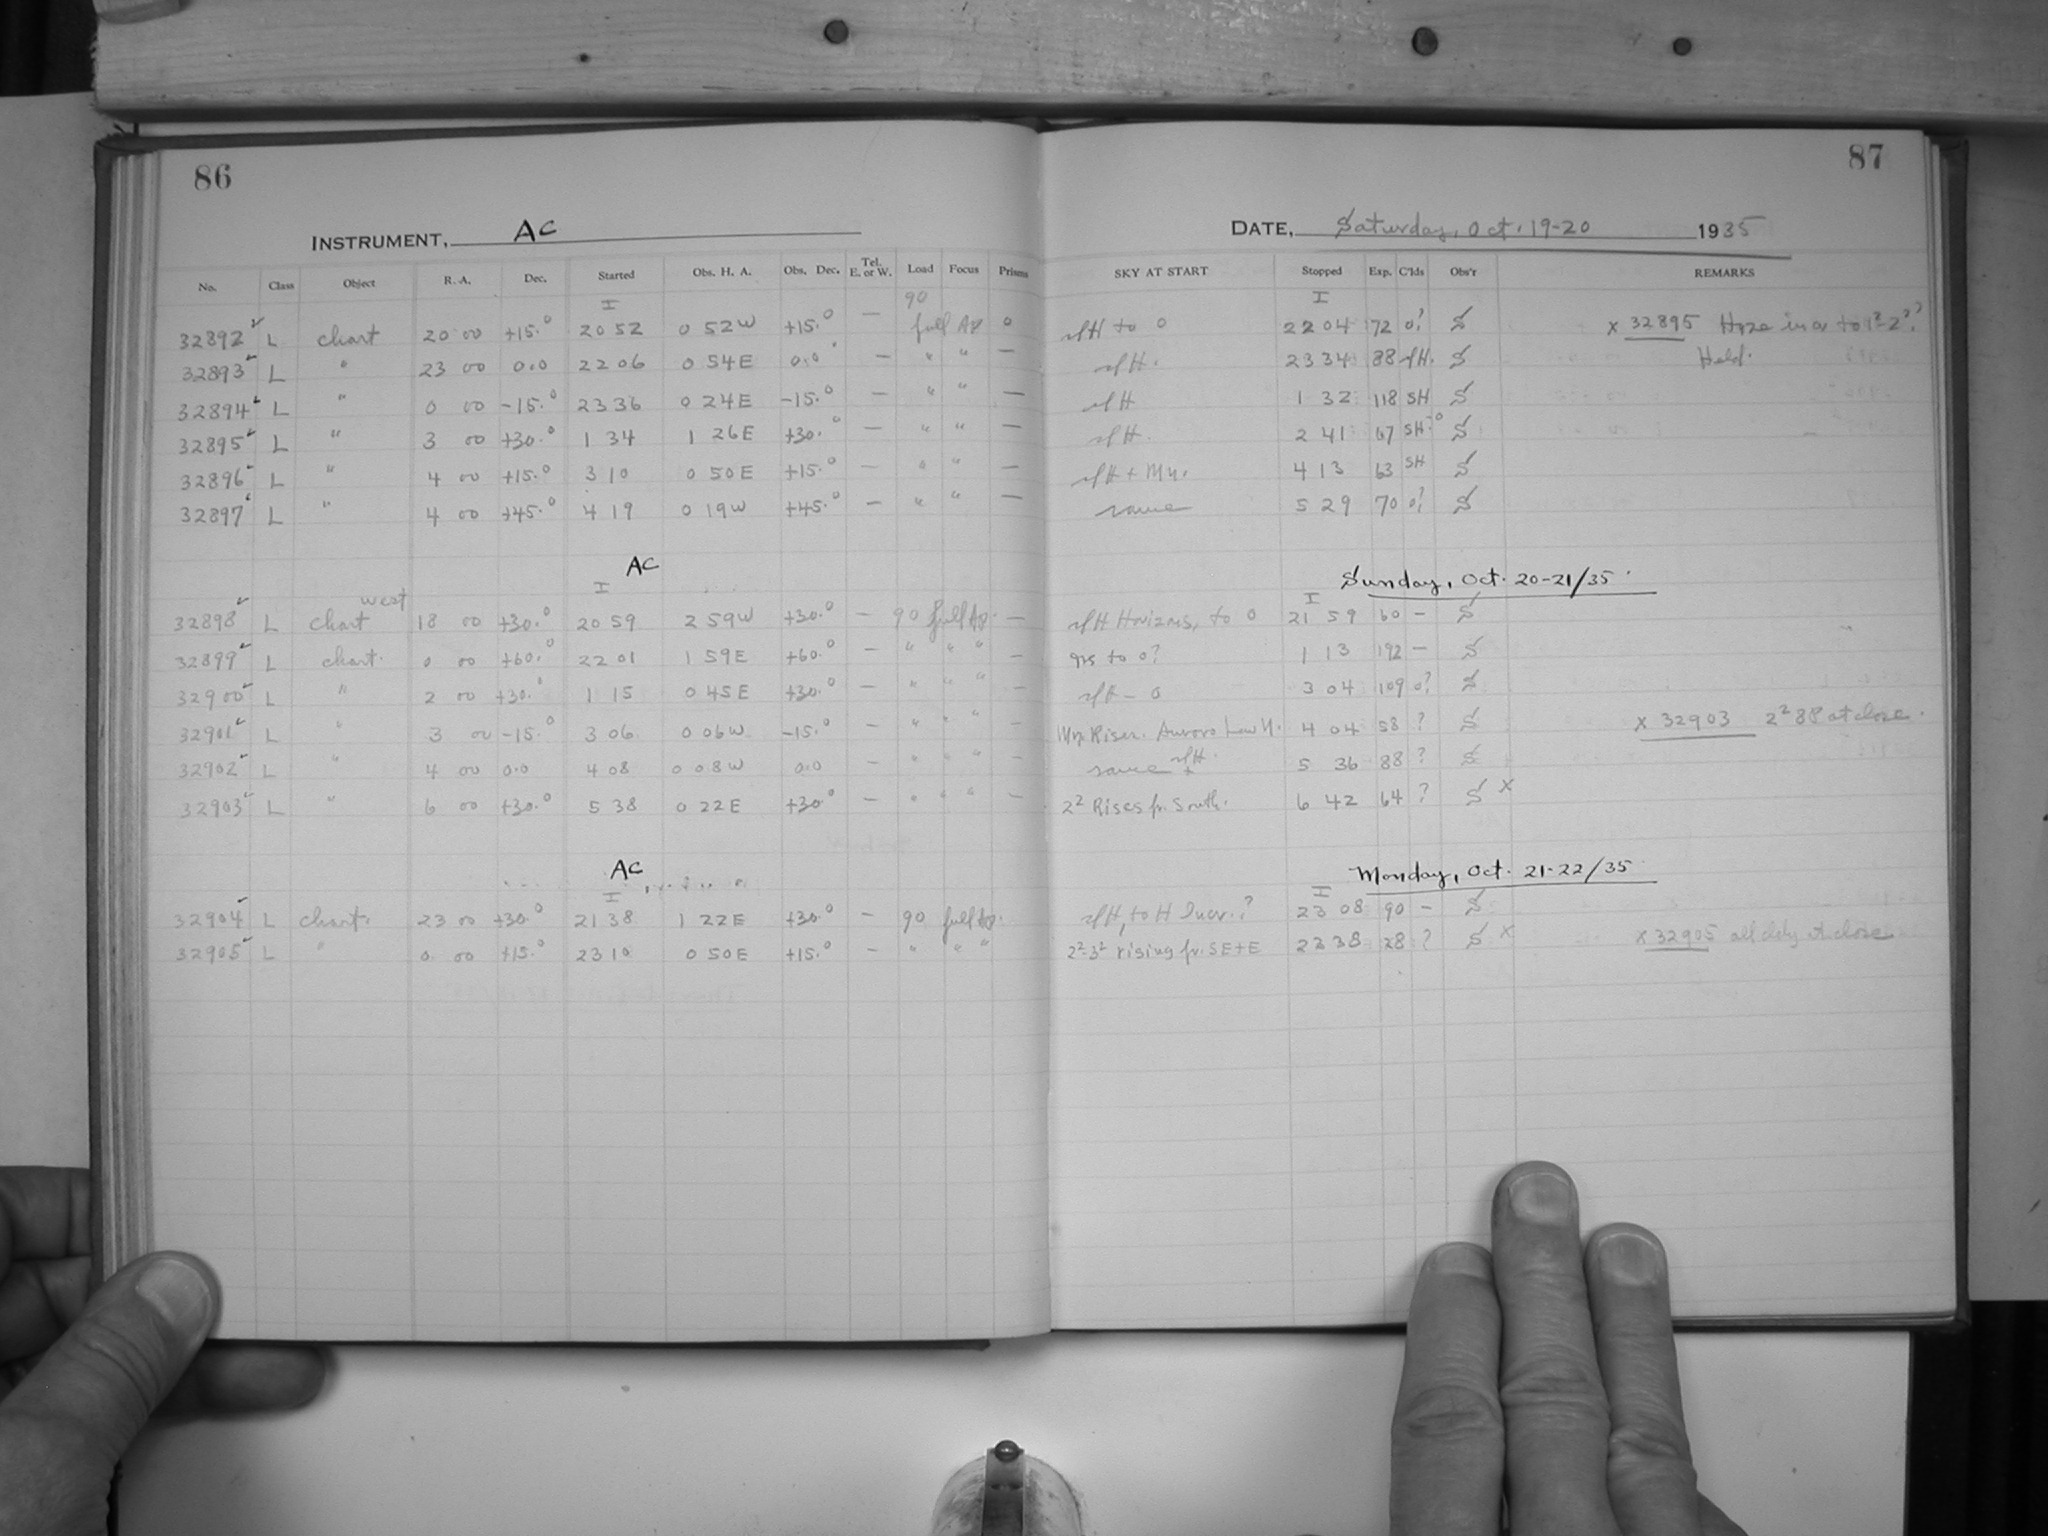 86
87
INSTRUMENT, AC
DATE, Saturday, Oct. 19-20 1935
No. Class Object R. A. Dec. Started Obs. H. A. Obs. Dec. Tel. E. or W. Load Focus Prisms SKY AT START Stopped Exp. C'lds Obs'r REMARKS
I 90 I
32892 ✓ L chart 20 00 +15.° 20 52 0 52W +15.° — full Ap 0 slH to 0 22 04 72 0? S x 32895 Haze in cr to 1²-2²?
32893 ✓ L " 23 00 0.0 22 06 0 54E 0.0° — " " — slH. 23 34 88 slH. S Held.
32894 ✓ L " 0 00 -15.° 23 36 0 24E -15.° — " " — slH 1 32 118 SH S
32895 ✓ L " 3 00 +30.° 1 34 1 26E +30.° — " " — slH. 2 41 67 SH-0 S
32896 ✓ L " 4 00 +15.° 3 10 0 50E +15.° — " " — slH + Mn. 4 13 63 SH S
32897 ✓ L " 4 00 +45.° 4 19 0 19W +45.° — " " — same 5 29 70 0? S
AC Sunday, Oct. 20-21/35
I I
32898 ✓ L chart west 18 00 +30.° 20 59 2 59W +30.° — 90 full Ap. — slH Horizons, to 0 21 59 60 — S
32899 ✓ L chart. 0 00 +60.° 22 01 1 59E +60.° — " " " — to 0? 1 13 192 — S
32900 ✓ L " 2 00 +30.° 1 15 0 45E +30.° — " " " — slH - 0 3 04 109 0? S
32901 ✓ L " 3 00 -15.° 3 06 0 06W -15.° — " " " — Mn. Riser. Aurora Low N. 4 04 58 ? S x 32903 2² 8P at close.
32902 ✓ L " 4 00 0.0 4 08 0 08W 0.0 — " " " — same + slH. 5 36 88 ? S
32903 ✓ L " 6 00 +30.° 5 38 0 22E +30° — " " " — 2² Rises fr. South. 6 42 64 ? S x
AC Monday, Oct. 21-22/35
I I
32904 ✓ L chart. 23 00 +30.° 21 38 1 22E +30.° — 90 full Ap. slH, to H Incr.? 23 08 90 — S
32905 ✓ L " 0 00 +15.° 23 10 0 50E +15.° — " " " 2²-3² rising fr. SE+E 23 38 28 ? S x x 32905 all cldy at close